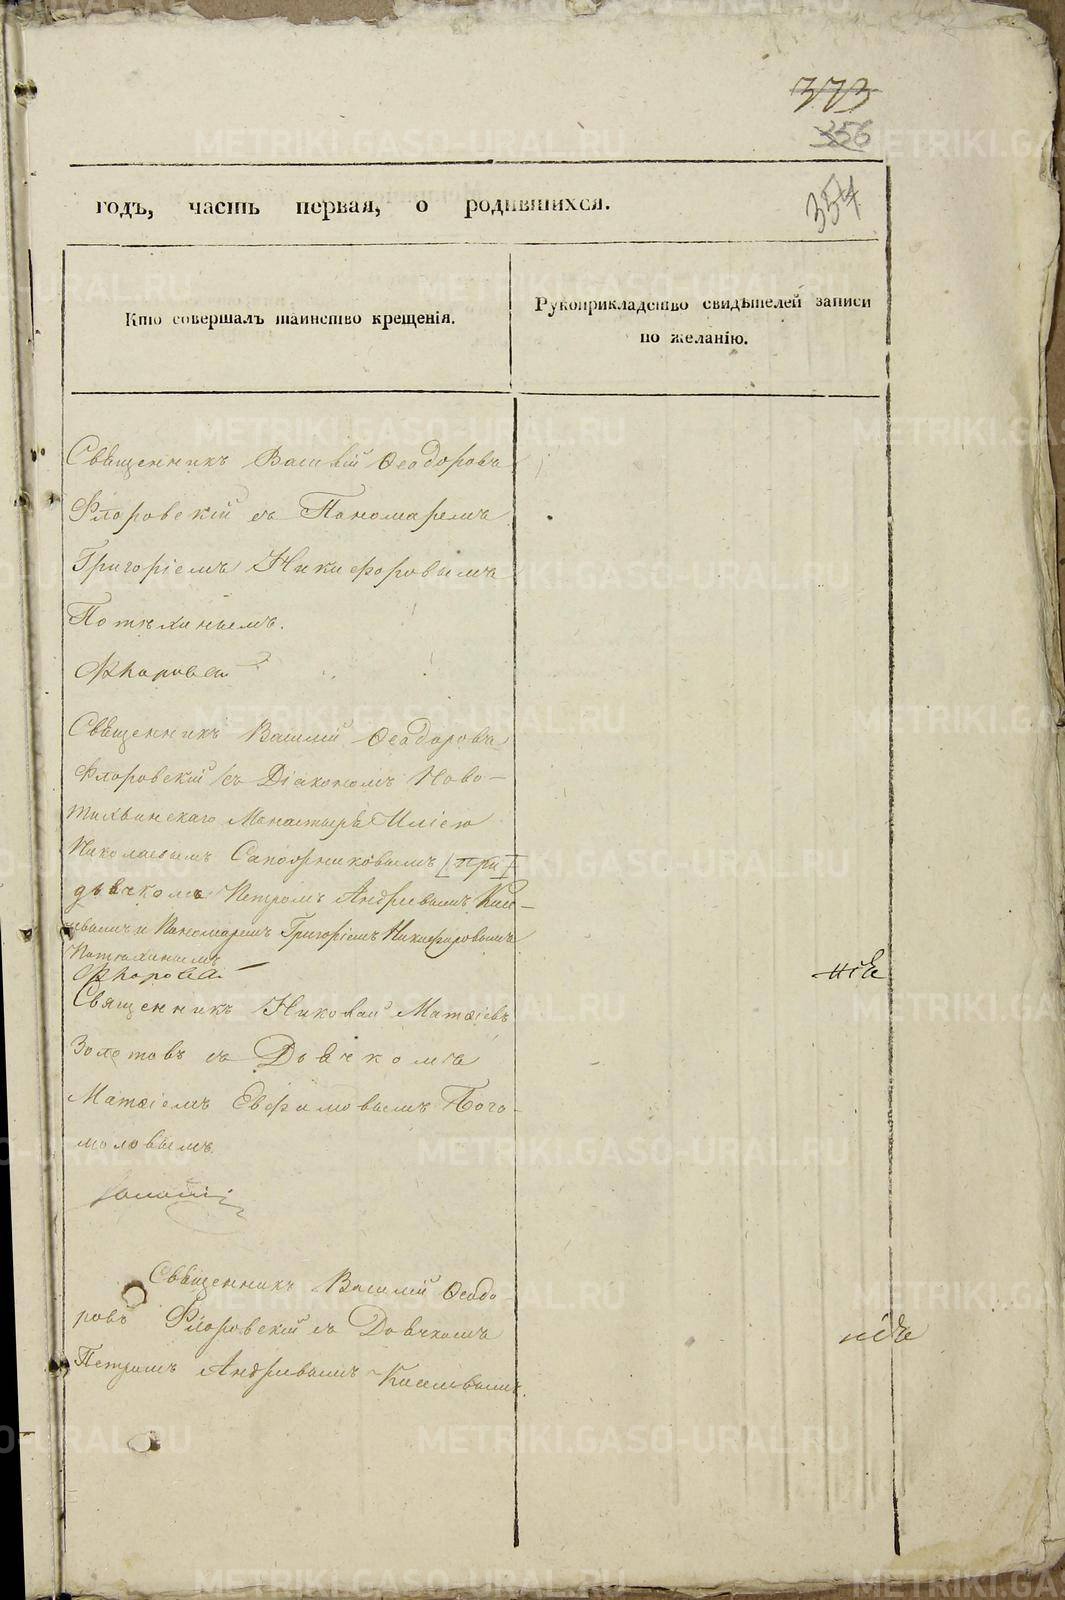 373
356
354
годъ, часть первая, о родившихся.
Кто совершалъ таинство крещенія.
Рукоприкладство свидѣтелей записи
по желанію.
Свѣщенникъ Василій Ѳеодоровъ
Флоровскій съ Пономаремъ
Григоріемъ Никифоровымъ
Потѣхинымъ.
Свѣщенникъ Василій Ѳеодоровъ
Флоровскій съ Діакономъ Ново-
тихвинскаго Монастыря Иліею
Николаевымъ Сапожниковымъ [при]
дьячкомъ Петромъ Андреевымъ Кисе-
левымъ и Пономаремъ Григоріемъ Никифоровымъ
Потехинымъ
Священникъ Николай Матѳіевъ
Золотовъ съ Дьячкомъ
Матѳіемъ Евфимовымъ Бого-
моловымъ.
Свѣщенникъ Василій Ѳеодо-
ровъ Флоровскій съ Дьячкомъ
Петромъ Андреевымъ Киселевымъ.
METRIKI.GASO-URAL.RU